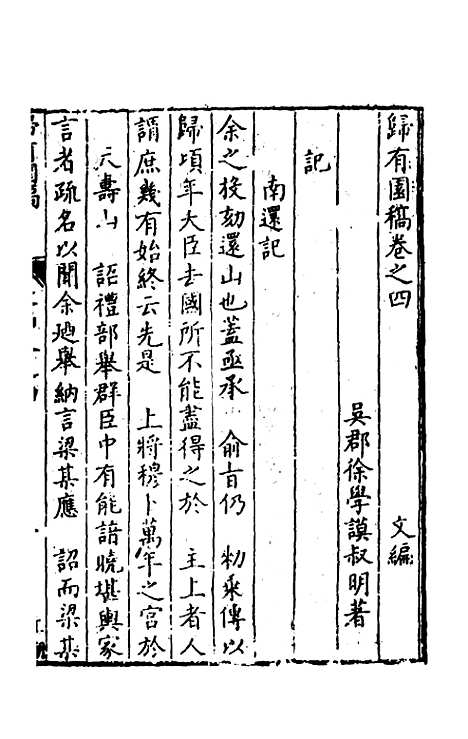 歸有園稿卷之四 文編
吳郡徐學謨叔明著
記
南還記
余之投劾還山也蓋亟承 俞旨仍 勑乘傳以
歸頃年大臣去國所不能盡得之於 主上者人
謂庶幾有始終云先是 上將穆卜萬年之宮於
天壽山 詔禮部舉群臣中有能諳曉堪輿家
言者疏名以聞余迺舉納言梁某應 詔而梁某